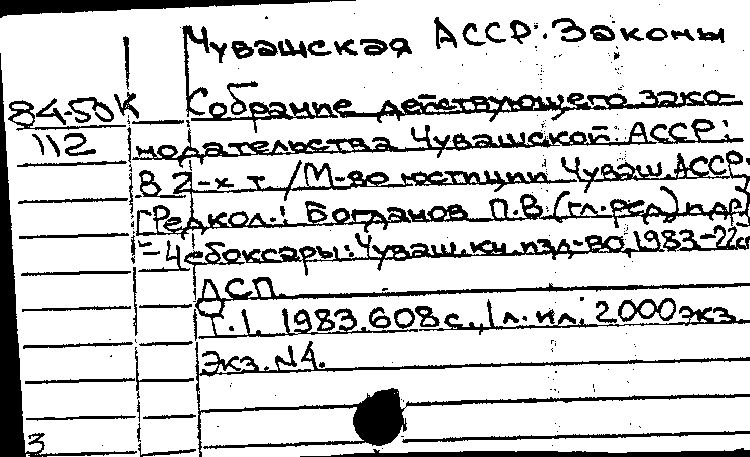 Чувашская АССР. Законы
84-50К Собрание действующего зако-
112 нодательства Чувашской АССР:
В 2-х т. / М-во юстиции Чуваш. АССР;
[Редкол.: Богданов П.В. (гл. ред.) и др.]
- Чебоксары: Чуваш. кн. изд-во, 1983-22см
ДСП
Т.1. 1983. 608 с., 1 л. ил; 2000 экз.
Экз. N4.
3